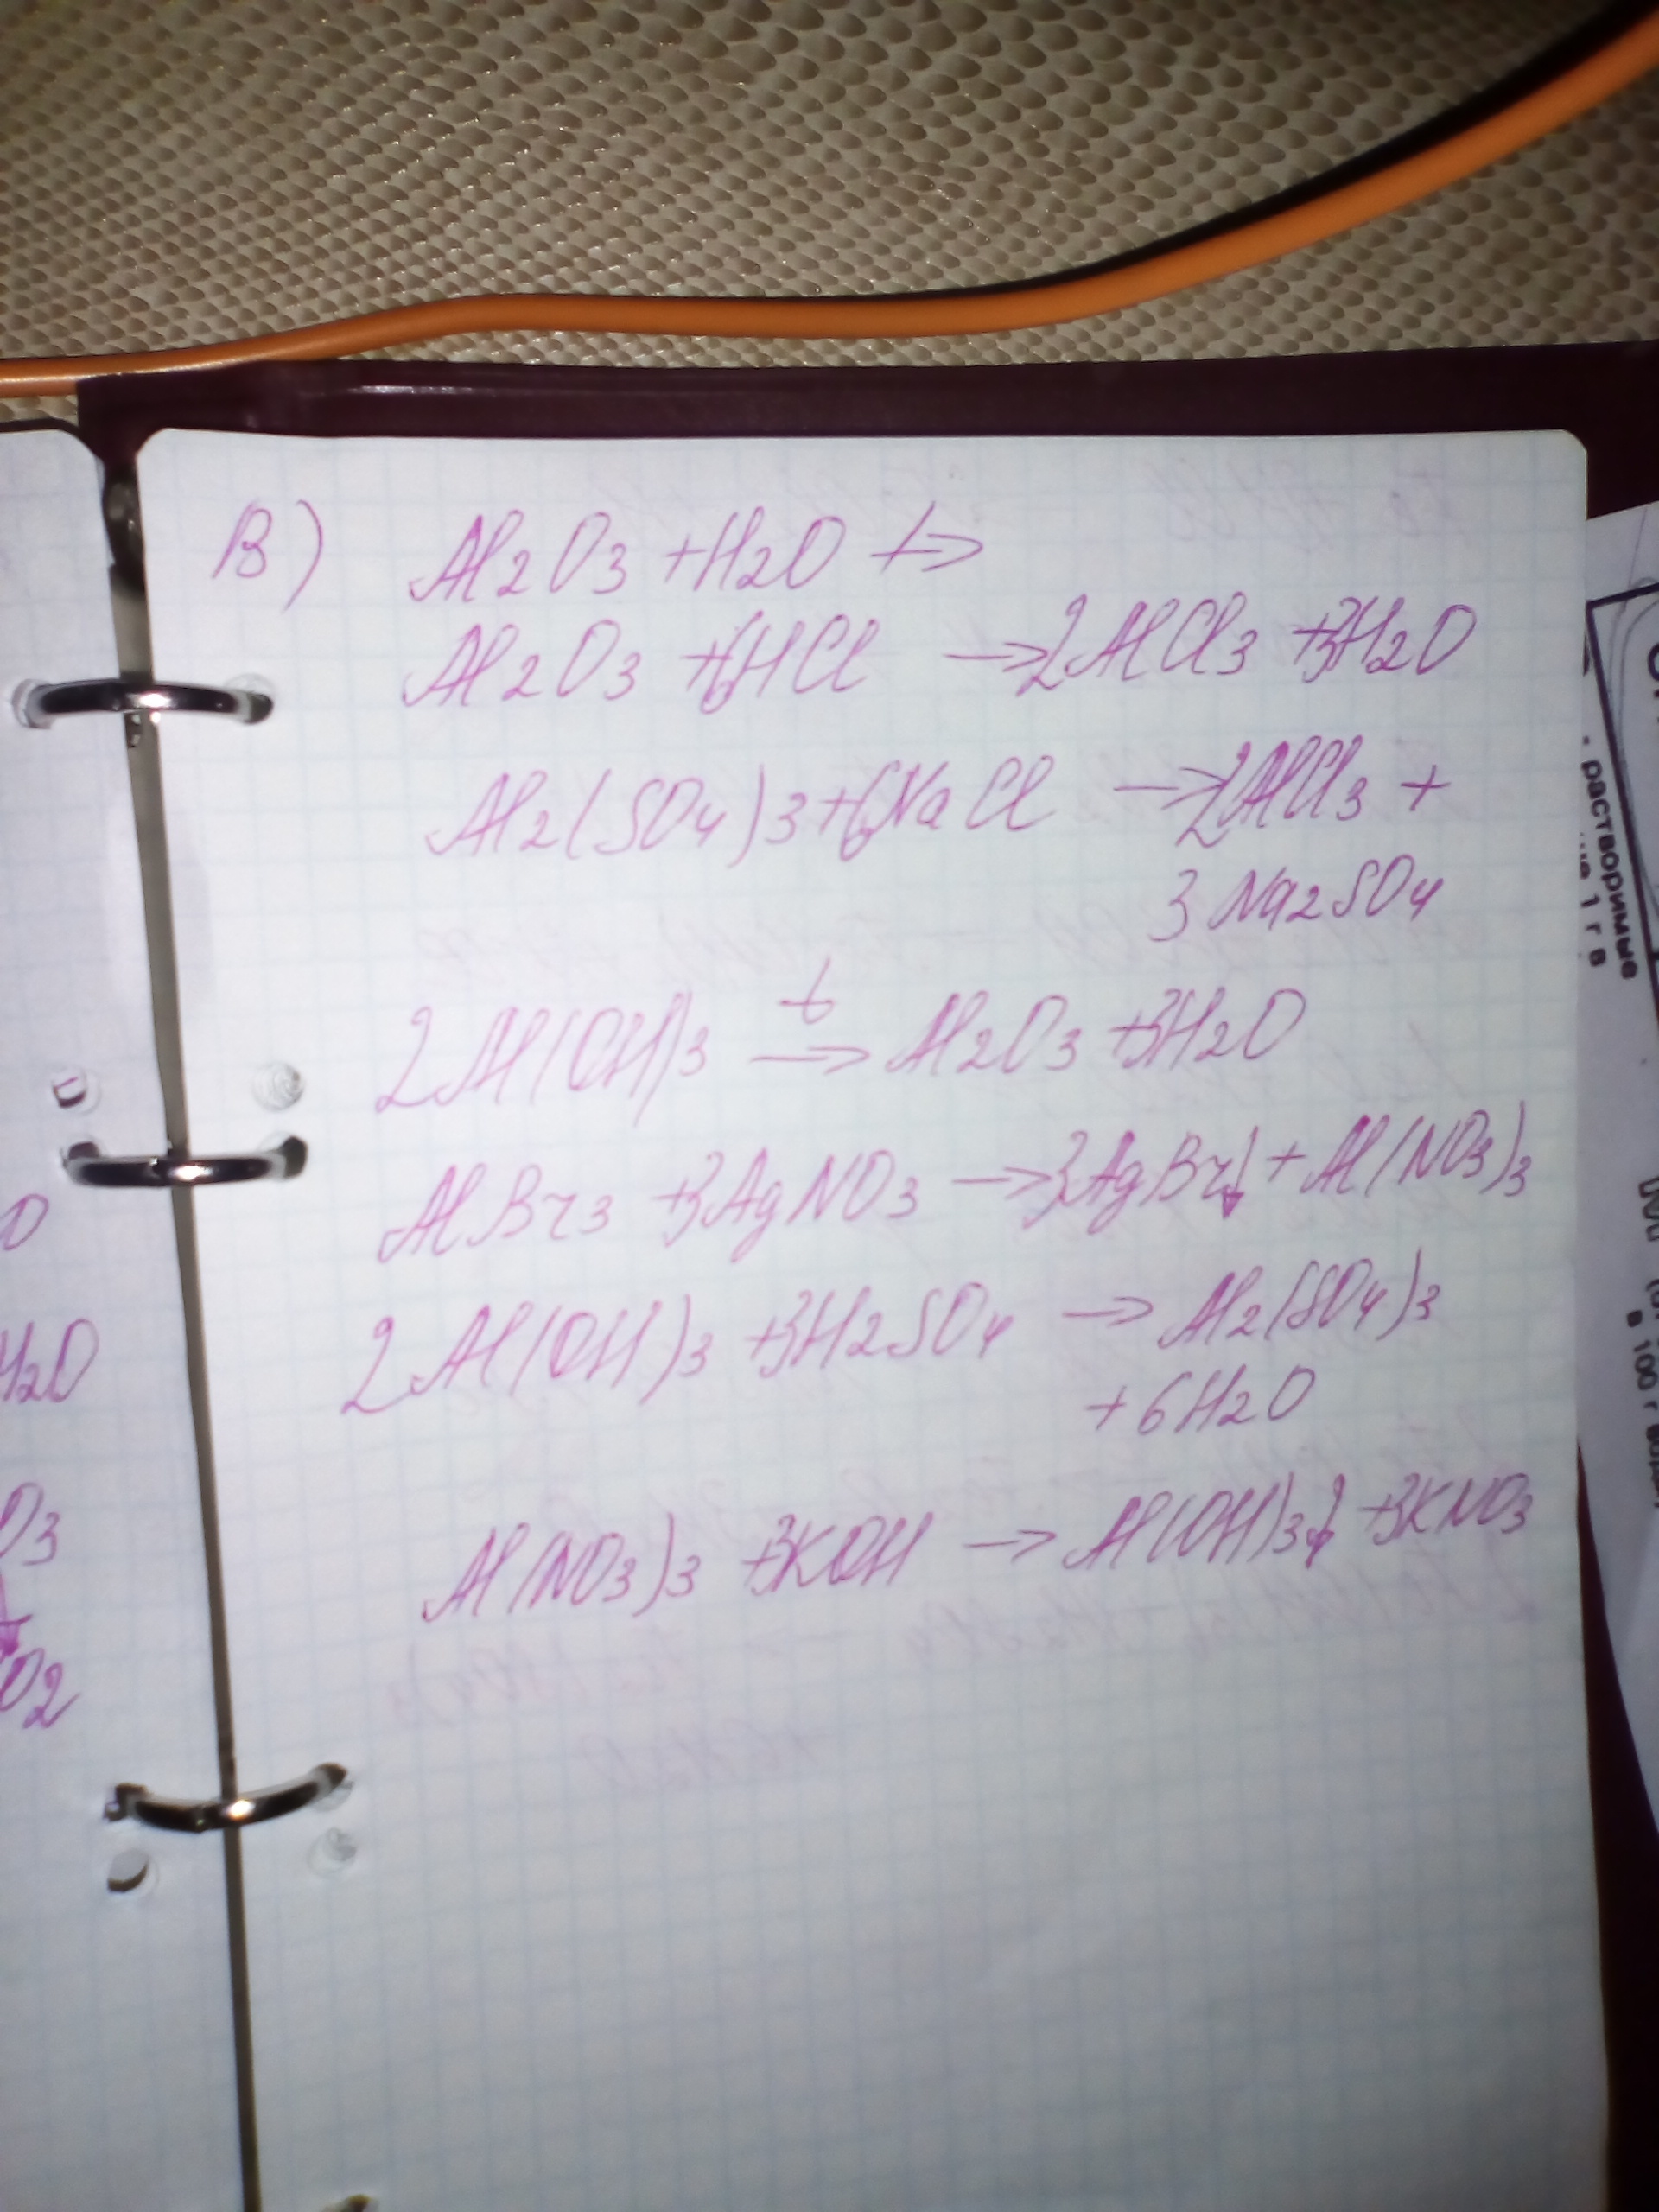 В) Al2O3 + H2O ↛
Al2O3 + 6HCl → 2AlCl3 + 3H2O
Al2(SO4)3 + 6NaCl → 2AlCl3 +
3 Na2SO4
2Al(OH)3 t→ Al2O3 + 3H2O
AlBr3 + 3AgNO3 → 3AgBr↓ + Al(NO3)3
2Al(OH)3 + 3H2SO4 → Al2(SO4)3
+ 6H2O
Al(NO3)3 + 3KOH → Al(OH)3↓ + 3KNO3
O
H2O
O3
O2
- растворимые
1 г в
в 100 г